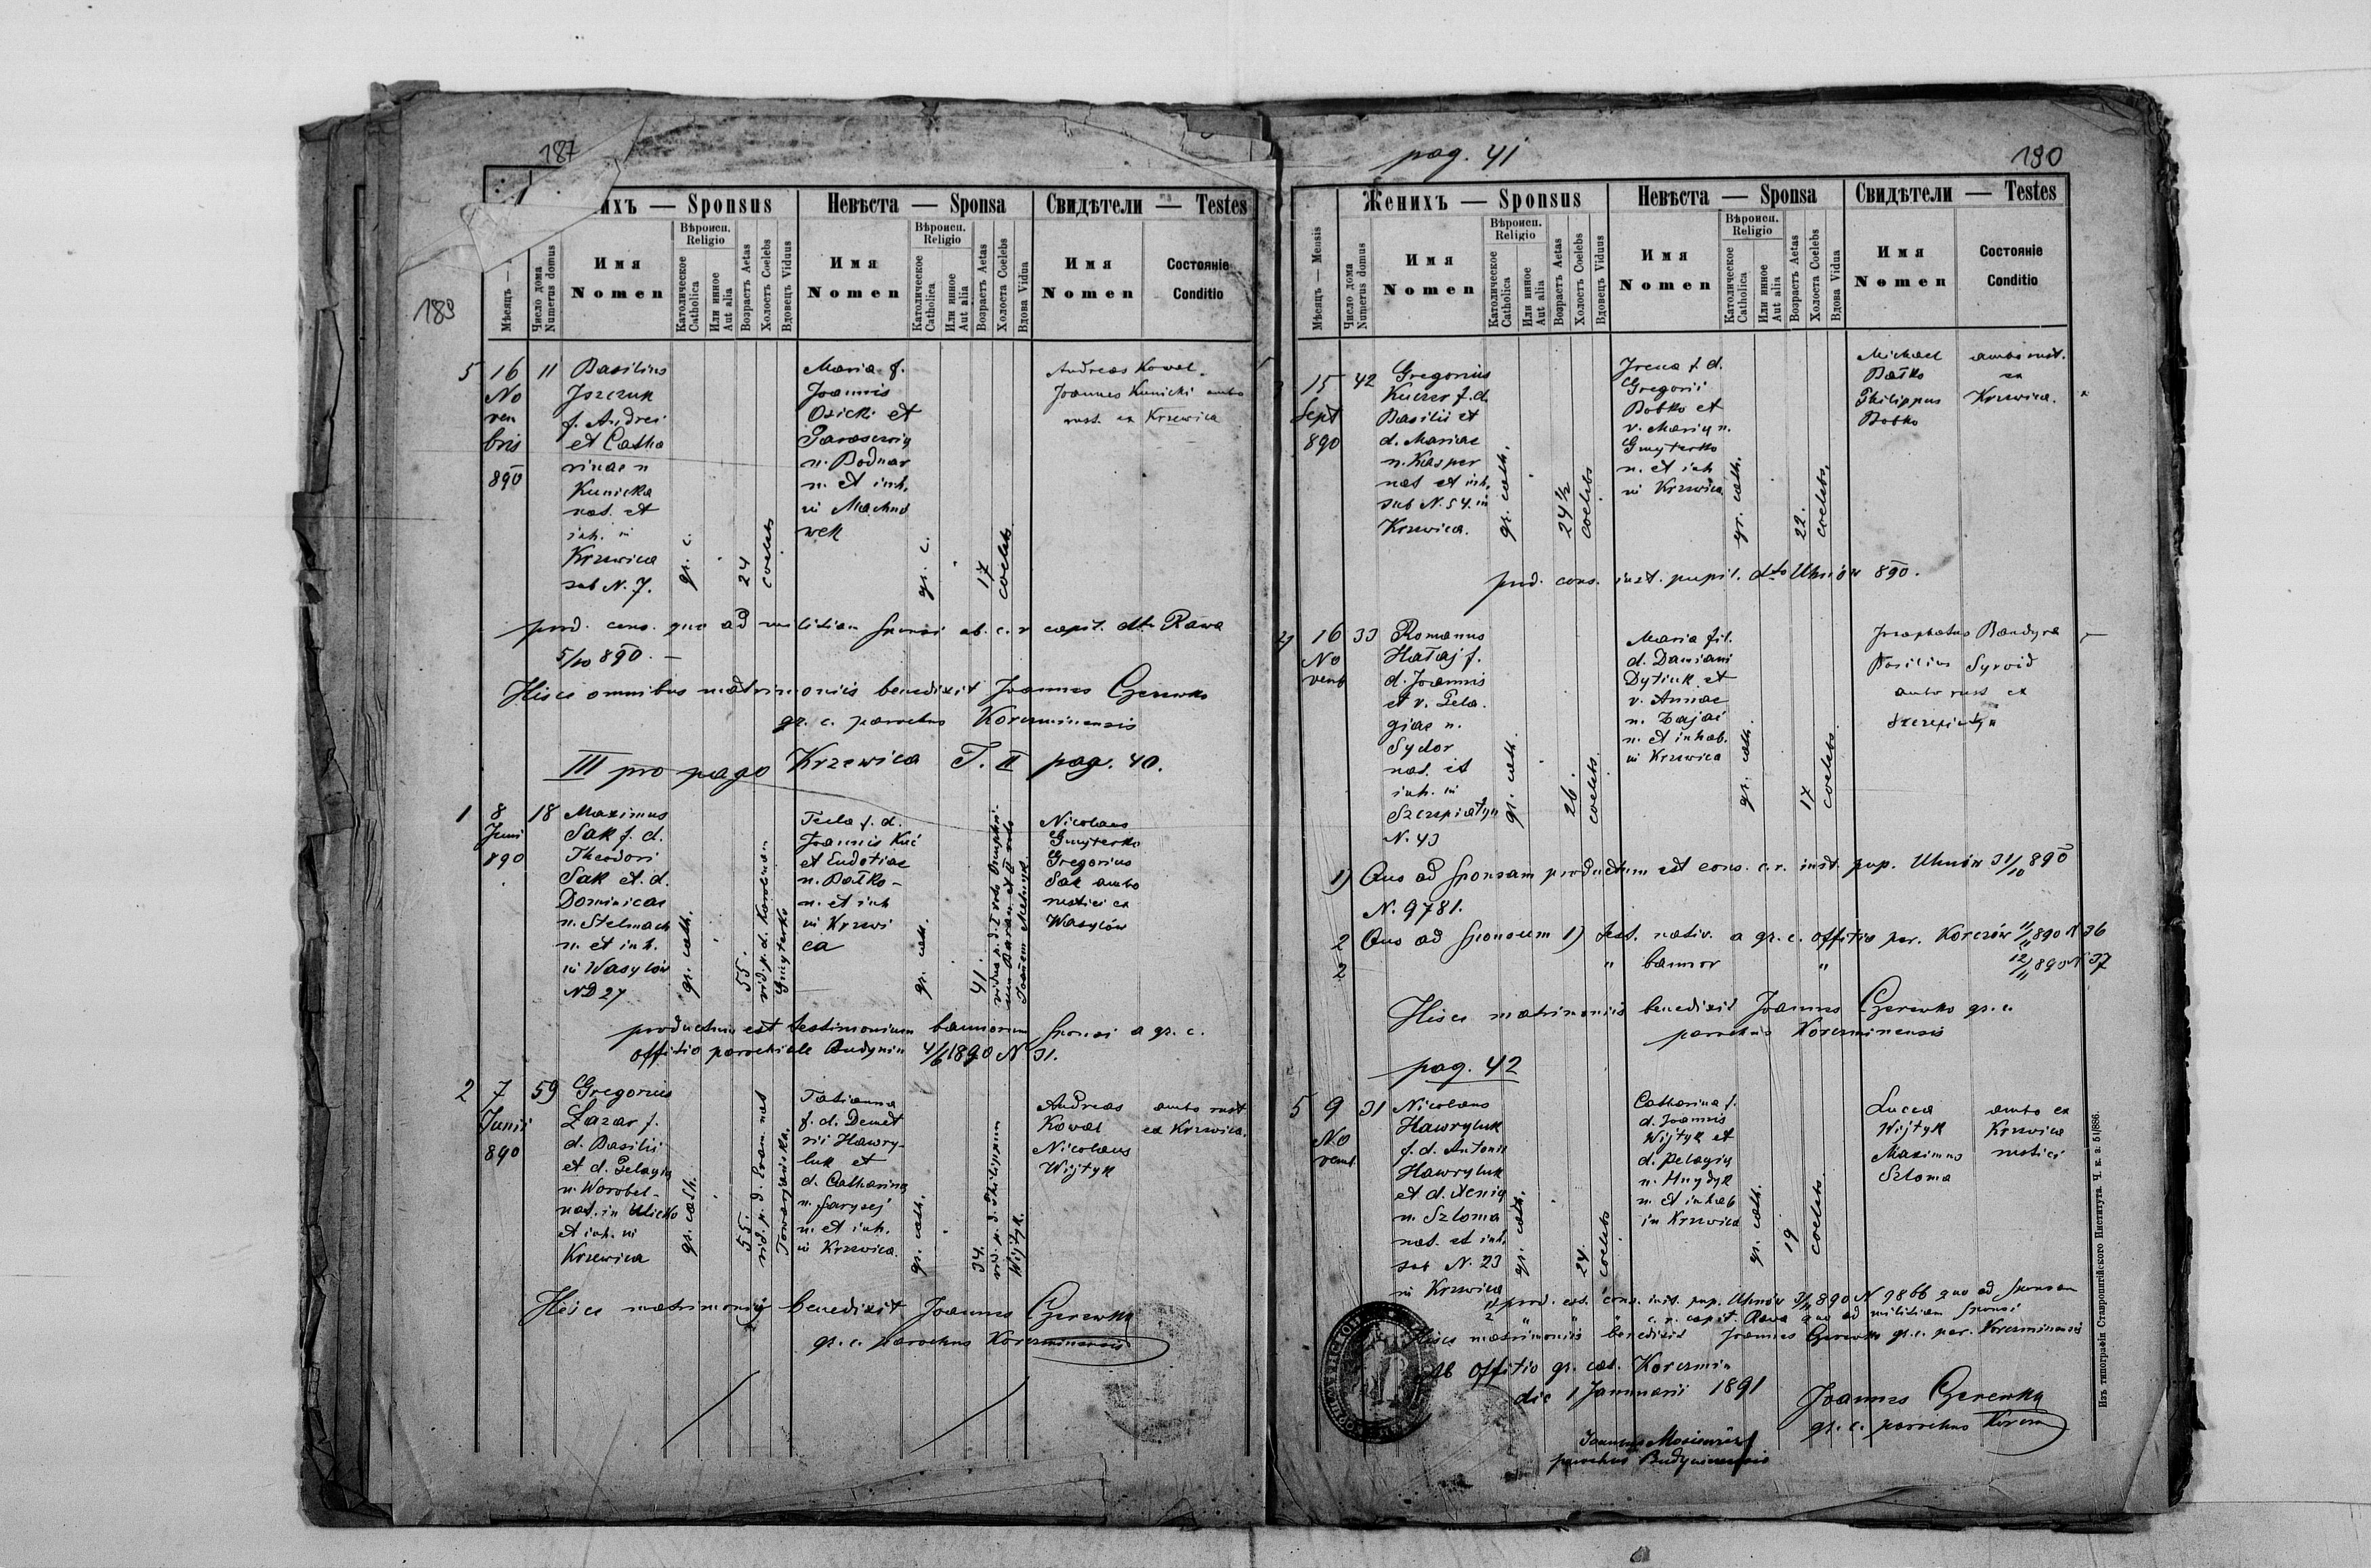 187
189
ихъ — Sponsus
Невѣста — Sponsa
Свидѣтели — Testes
Мѣсяцъ —
Число дома Numerus domus
Имя Nomen
Вѣроисп. Religio
Католическое Catholica
Или инное Aut alia
Возрастъ Aetas
Холостъ Coelebs
Вдовецъ Viduus
Имя Nomen
Вѣроисп. Religio
Католическое Catholica
Или инное Aut alia
Возрастъ Aetas
Холоста Coelebs
Вдова Vidua
Имя Nomen
Состояніе Conditio
5
16
No
ven
bris
890
11
Basilius
Jszczuk
f. Andrei
et Catha
rinae n
Kunicka
nat. et
inh. in
Krzewica
sub N. 7.
gr. c.
24
coelebs
Maria f.
Joannis
Osicki et
Parascevią
n. Bodnar
n. et inh.
in Machnó
wek
gr. c.
17
coelebs
Andreas Kowal
Joannes Kunicki ambo
rust. ex Krzewica
prod. cons. quo ad militiam sponsi ab. c. r. capit. dto Rawa
5/10 890. —
Hisce omnibus matrimoniis benedixit Joannes Czerewko
gr. c. parochus Korczminensis
III pro pago Krzewica T. II pag. 40.
1
8
Juni
890
18
Maximus
Sak f. d.
Theodori
Sak et. d.
Dominicae
n. Stelmach
n. et inh.
in Wasylów
ND 27
gr. cath.
55.
vid. p. d. Karolinam
Gmyterko
Tecla f. d.
Joannis Kuć
et Eudotiae
n. Bałko -
n. et inh
in Krzewi
ca
gr. cath.
41.
vidua p. d. I voto Onuphri-
um Baran et II voto
Joanem Melnyk
Nicolaus
Gmyterko
Gregorius
Sak ambo
rustici ex
Wasylów
productum est testimonium bannorum sponsi a gr. c.
offitio parochiale Budynin 4/6 1890 N 31.
2
7
Junii
890
59
Gregorius
Łazar f.
d. Basilii
et d. Pelagią
n. Worobel -
nat. in Ulicko
et inh. in
Krzewica
gr. cath.
55.
vid. p. d. Evam nat
Towarjańska.
Tatianna
f. d. Demet
rii Hawry-
luk et
d. Catharina
n. Farysej
n. et inh.
in Krzewica.
gr. cath.
34.
vid. p. d. Philippum
Wijtyk.
Andreas
Kowal
Nicolaus
Wijtyk
ambo rust
ex Krzewica.
Hisce matrimonij benedixit Joannes Czerewko
gr. c. parochus Korczminensis
pag. 41
190
Женихъ — Sponsus
Невѣста — Sponsa
Свидѣтели — Testes
Мѣсяцъ — Mensis
Число дома Numerus domus
Имя Nomen
Вѣроисп. Religio
Католическое Catholica
Или инное Aut alia
Возрастъ Aetas
Холостъ Coelebs
Вдовецъ Viduus
Имя Nomen
Вѣроисп. Religio
Католическое Catholica
Или инное Aut alia
Возрастъ Aetas
Холоста Coelebs
Вдова Vidua
Имя Nomen
Состояніе Conditio
15
Sept
890
42
Gregorius
Kuczer f. d.
Basilii et
d. Mariae
n. Kasper
nat et inh.
sub N. 54. in
Krzewica.
gr. cath.
24 1/2
coelebs
Irena f. d.
Gregorii
Bobko et
v. Marią n.
Gmyterko
n. et inh
in Krzewica
gr. cath.
22.
coelebs.
Michael
Bałko
Philippus
Bobko
ambo rust.
ex
Krzewica.
prod. cons. inst. pupil. dto Uhnów 890.
4
16
No
vemb
33
Romanus
Hałaj f.
d. Joannis
et v. Pela.
giae n.
Sydor
nat. et
inh. in
Szczepiatyn
N. 43
gr. cath.
26.
coelebs.
Maria fil.
d. Damiani
Dytiuk et
v. Annae
n. Zając
n. et inhab.
in Krzewica
gr. cath.
17
coelebs.
Josaphatus Bandyra
Basilius Syroid
ambo rust ex
Szczepiatyn
1) Quo ad sponsam productum est cons. c. r. inst. pup. Uhnów 31/10 890
N. 9781.
2 Quo ad sponsum 1) test. nativ. a gr. c. offitio par. Korczów 11/11 890 N 36
2 " bannor " 12/11 890 N 37
Hisce matrimoniis benedixit Joannes Czerewko gr. c.
parochus Korczminensis
pag. 42
5
9
No
vemb.
31
Nicolaus
Hawryluk
f. d. Antonii
Hawryluk
et d. Xenią
n. Szloma
nat. et inh.
sub N. 23
in Krzewica
gr. cath.
24.
coelebs
Catharina f.
d. Joannis
Wijtyk et
d. Pelagią
n. Hnydyk
n. et inhab
in Krzewica
gr. cath.
19
coelebs.
Lucca
Wijtyk
Maximus
Szloma
ambo ex
Krzewica
rustici
1) prod. est. cons. inst. pup. Uhnów 890 N 9866 quo ad sponsam
2 " " " c. r. capit. Rawa quo ad militiam sponsi
Hisce matrimoniis benedixit Joannes Czerewko gr. c. par. Korczminensis
Ab Offitio gr. cat. Korczmin
die 1 Januarii 1891
Joannes Czerewko
gr. c. parochus Korczm
parochus Budyninensis
Изъ типографіи Ставропигійского Института. Ч. к. з: 51/886.